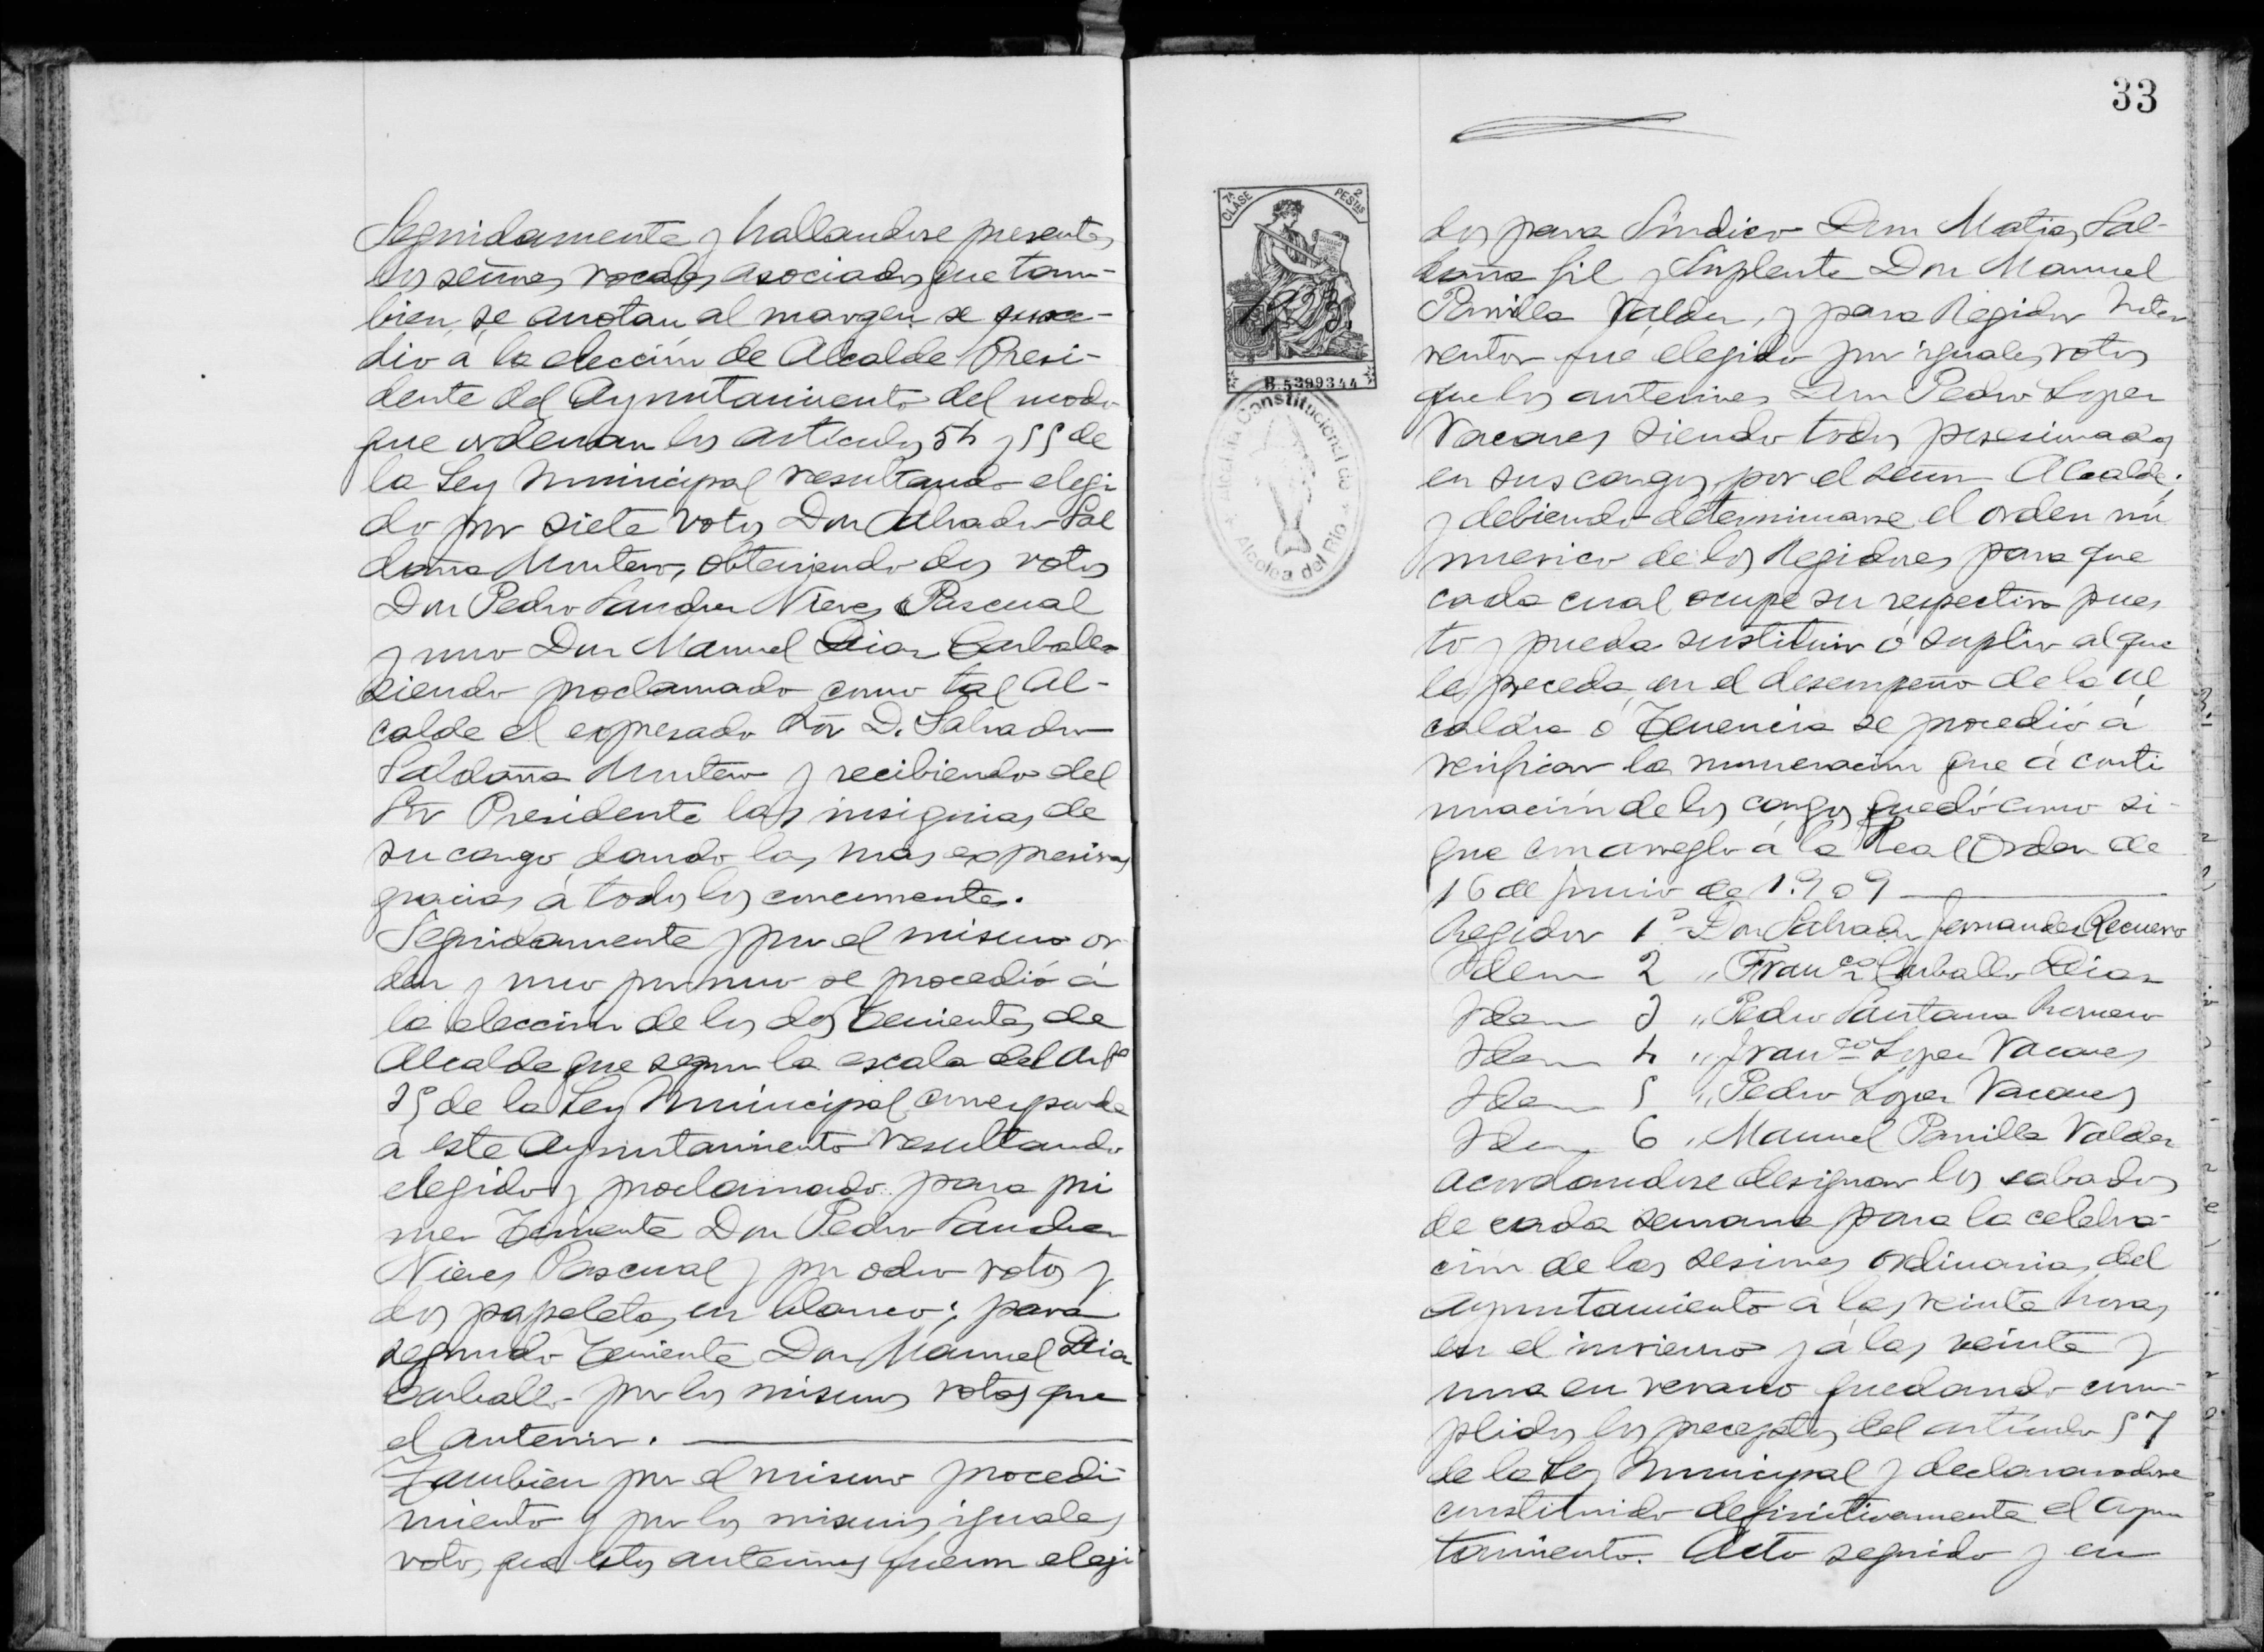 Seguidamente y hallandose presentes
los señores vocales asociados que tam-
bien se anotan al margen se proce-
dió á la elección de Alcalde Presi-
dente del Ayuntamiento del modo
que ordenan los artículos 54 y 55 de
la Ley Municipal resultando elegi
do por siete votos Don Salvador Sal
daña Montero, obteniendo dos votos
Don Pedro Sanchez Nieves Pascual
y uno Don Manuel Diaz Carballo
siendo proclamado como tal Al-
calde el expresado Sor D. Salvador
Saldaña Montero y recibiendo del
Sr Presidente las insignias de
su cargo dando las mas expresivas
gracias á todos los concurrentes.
Seguidamente y por el mismo or
den y uno por uno se procedió á
la elección de los dos Tenientes de
Alcalde que segun la escala del Arto
35 de la Ley Municipal corresponde
a este Ayuntamiento resultando
elegido y proclamado para pri
mer Teniente Don Pedro Sanchez
Nieves Pascual y por ocho votos y
dos papeletas en blanco; para
segundo Teniente Don Manuel Diaz
Carballo por los mismos votos que
el anterior.
Tambien por el mismo procedi-
miento y por los mismos iguales
votos que estos anteriores fueron eleji
33
7ª CLASE
2 PESTAS
1923
B.5399344
Alcaldía Constitucional de
Alcolea del Rio
dos para Síndico Don Matias Sal-
daña Gil y Suplente Don Manuel
Parrilla Valdez, y para Regidor Inter
ventor fué elegido por iguales votos
que los anteriores Don Pedro Lopez
Vacares siendo todos posesionados
en sus cargos por el señor Alcalde;
y debiendo determinarse el orden nu
merico de los Regidores para que
cada cual ocupe su respectivo pues
to y pueda sustituir ó suplir al que
le preceda en el desempeño de la Al
caldia ó Tenencia se procedió á
verificar la numeracion que á conti
nuación de los cargos quedó como si-
gue con arreglo á la Real Orden de
16 de Junio de 1.909
Regidor 1º Don Salvador Fernandez Recuero
Idem 2 " Franco Carballo Diaz
Idem 3 " Pedro Santana Romero
Idem 4 " Franco Lopez Vacares
Idem 5 " Pedro Lopez Vacares
Idem 6 " Manuel Parrilla Valdez
acordandose designar los sabados
de cada semana para la celebra-
ción de las sesiones ordinarias del
Ayuntamiento á las veinte horas
en el invierno y á las veinte y
una en verano quedando cum-
plidos los preceptos del artículo 57
de la Ley Municipal y declarandose
constituido definitivamente el Ayun
tamiento. Acto seguido y en